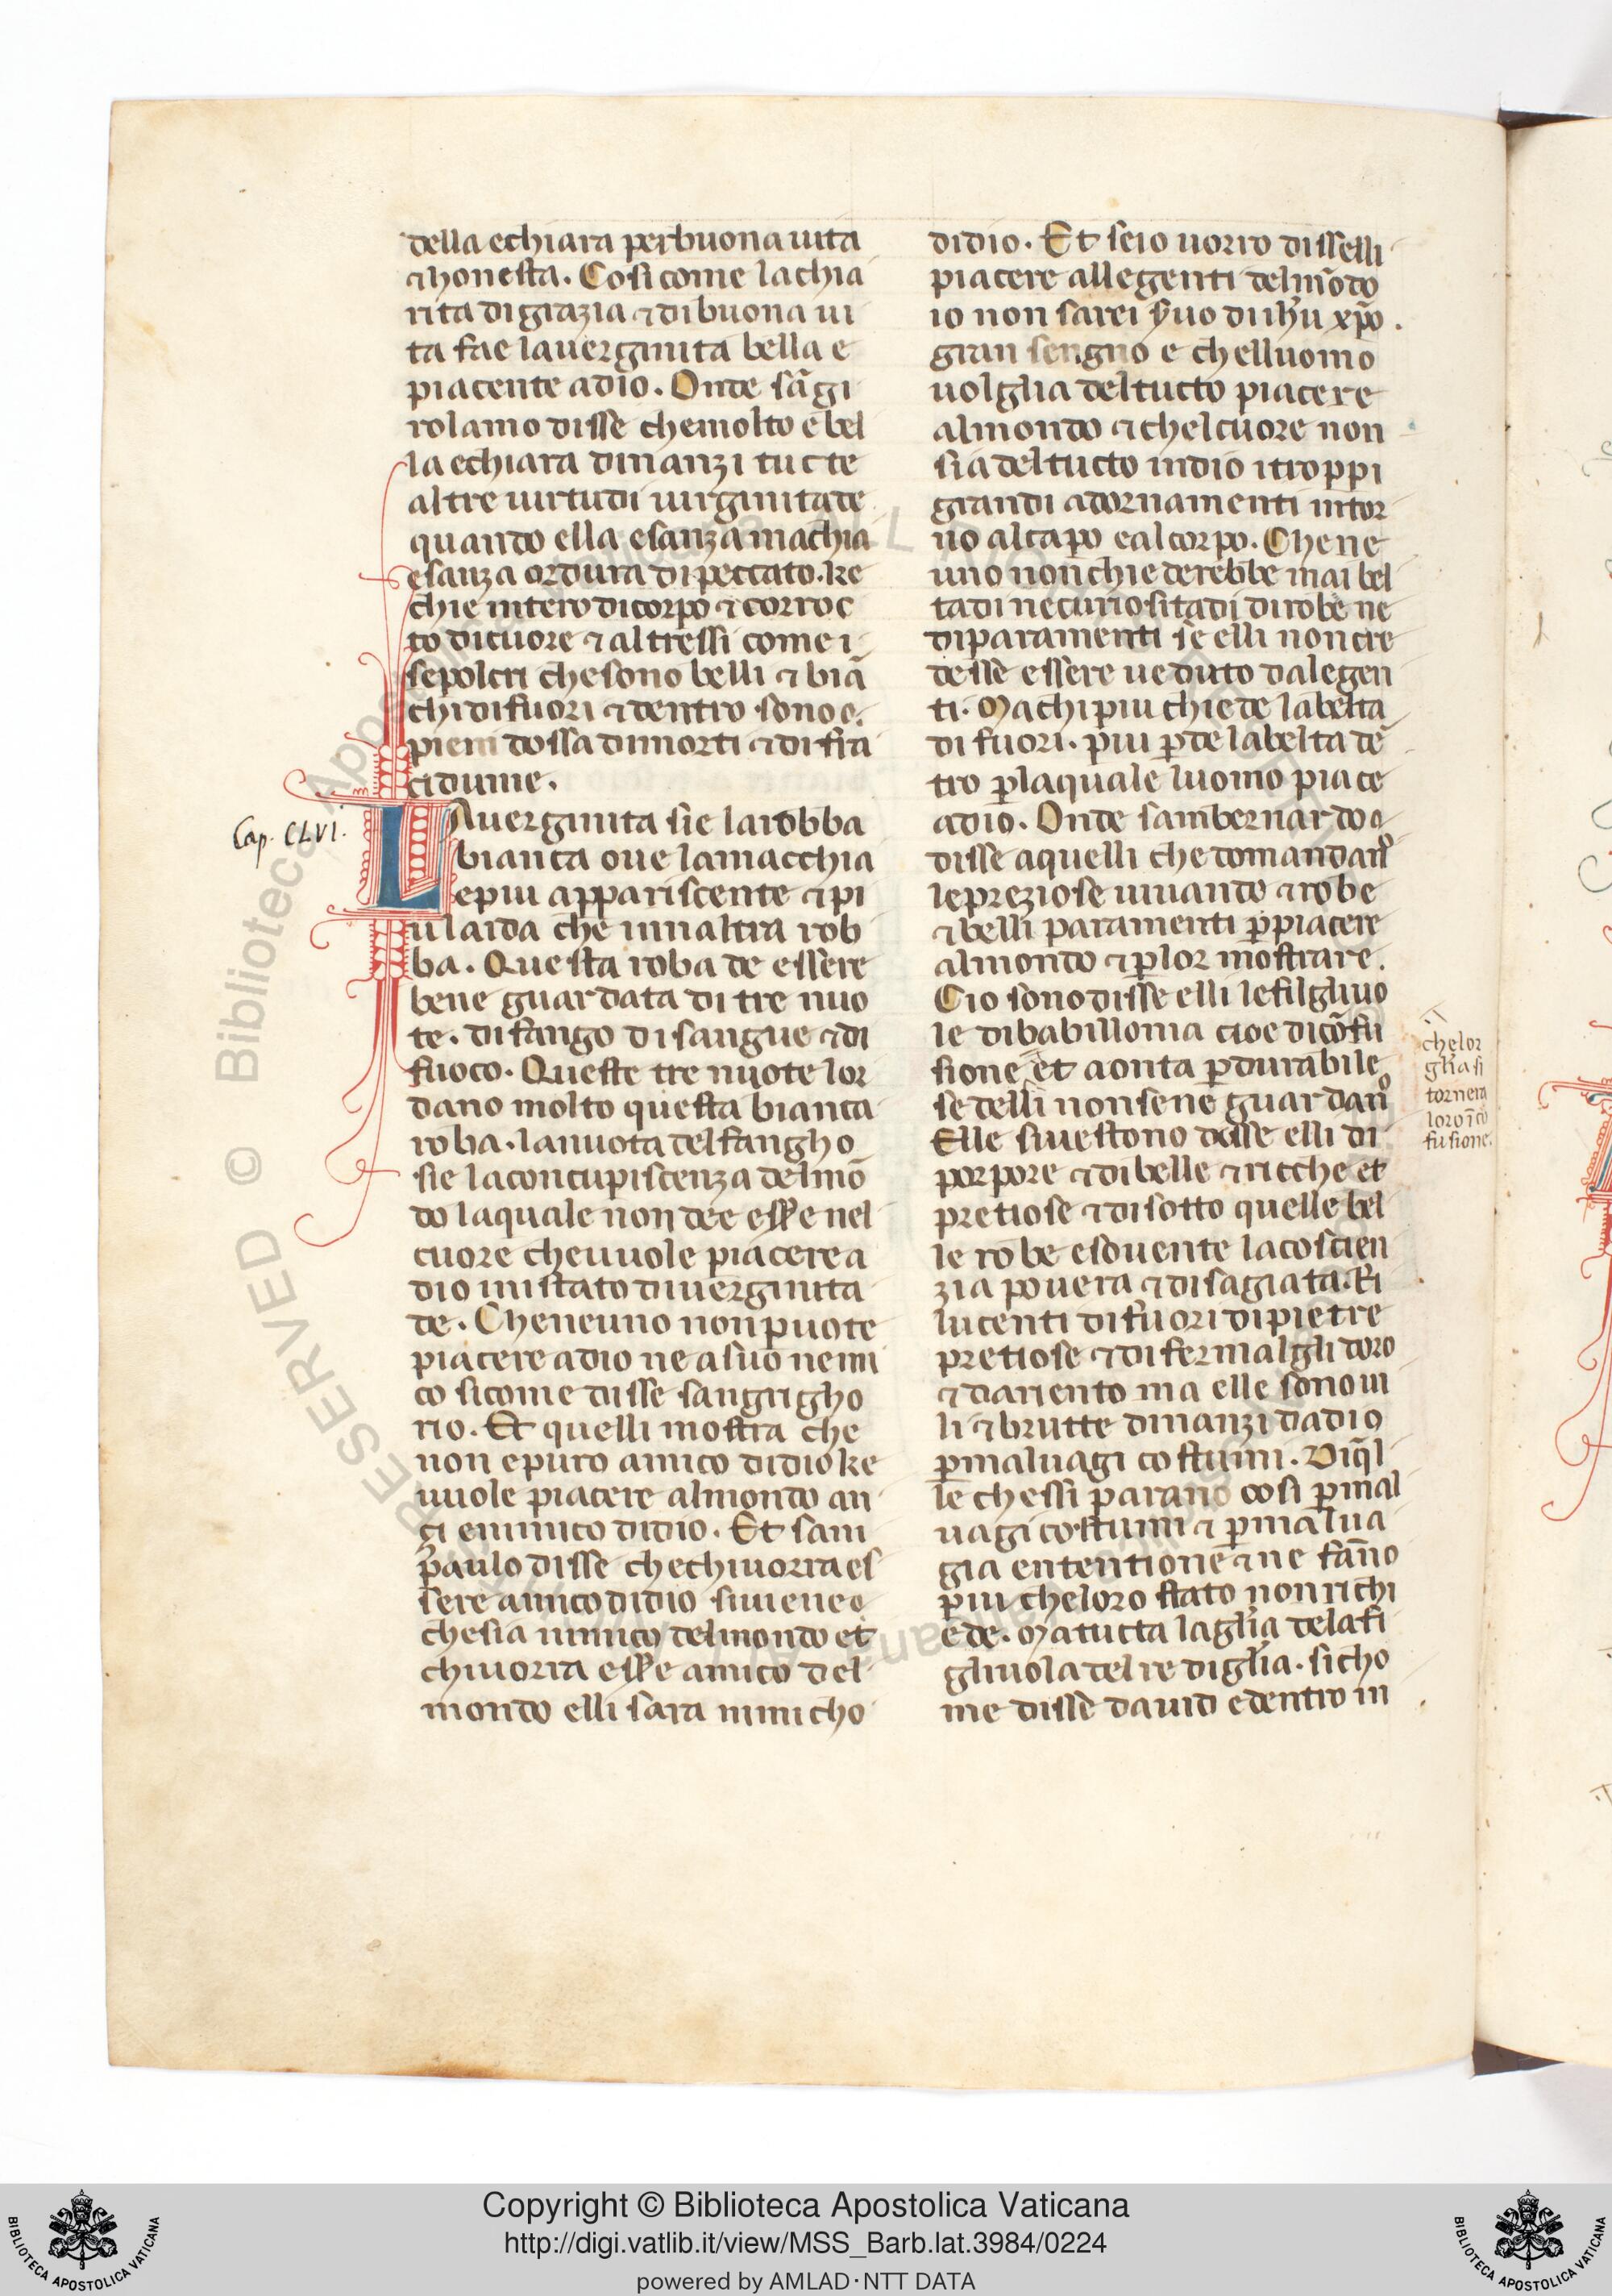 della echiara perbuona uita
⁊honesta. Cosi come lachia
rita digrazia ⁊dibuona ui
ta fae lauerginita bella e
piacente adio. Onde sāgi
rolamo disse chemolto e bel
la echiara dinanzi tucte
altre uirtudi uirginitade
quando ella esanza machia
esanza ordura di peccato. ke
chie intero dicorpo ⁊ corroc
to dicuore ⁊ altressi come i
sepolcri chesono belli ⁊ biā
chidifuori ⁊dentro sono
pieni dossa dimorti ⁊di fra
cidume.
Cap. CLVI.
LAuerginita sie larobba
bianca oue lamacchia
epiu appariscente ⁊ pi
u laida che innaltra rob
ba. Questa roba de essere
bene guardata di tre nuo
te. di fango di sangue ⁊di
fuoco. Queste tre nuote lor
dano molto questa bianca
roba. lanuota delfangho
sie laconcupiscenza delmō
do laquale non dee esse nel
cuore cheuuole piacere a
dio inistato diuerginita
de. Cheneuno non puote
piacere adio ne asuo nemi
co sicome disse sangrigho
rio. Et quelli mostra che
non epuro amico didio ke
uuole piacere almondo an
ci enimico didio. Et sam
paulo disse chechiuorra es
sere amico didio siuiene
chesia nimico delmondo et
chiuorra esse amico del
mondo elli sara nimicho
didio. Et seio uorro disselli
piacere allegenti delmōdo
io non sarei s̄uo di ih̄u xp̄o.
gran sengno e chelluomo
uolglia deltucto piacere
almondo ⁊ chelcuore non
sia deltucto indio i troppi
grandi adornamenti intor
no alcapo ealcorpo. Chene
uno non chiederebbe mai bel
tadi necuriositadi dirobe ne
diparamenti se elli noncre
desse essere ueduto dalegen
ti. Machi piu chiede labelta
di fuori. piu p̄de labelta dē
tro p̄laquale luomo piace
adio. Onde sambernardo
disse aquelli che domandano
lepreziose uiuando ⁊ robe
⁊belli paramenti p̄piacere
almondo ⁊ p̄lor mostrare.
Cio sono disse elli lefilgliuo
le dibabillonia cioe dicōfu
sione et aonta p̄durabile
chelor
gl̄ia si
tornera
loro ī cō
fusione.
se delli nonsene guardano
Elle siuestono disse elli di
porpore ⁊dibelle ⁊ricche et
pretiose ⁊disotto quelle bel
le robe esouente lacoscien
zia pouera ⁊disagiata. Ri
lucenti difuori dipietre
pretiose ⁊difermalgli doro
⁊dariento ma elle sono ui
li ⁊ brutte dinanzi dadio
p̄maluagi costumi. Diq̄l
le chessi parano cosi p̄mal
uagi costumi ⁊ p̄malua
gia ententione ⁊ne fanno
piu cheloro stato non richi
ede. Matucta lagl̄ia delafi
gliuola del re digl̄ia. sicho
me disse dauid edentro in
Copyright © Biblioteca Apostolica Vaticana
http://digi.vatlib.it/view/MSS_Barb.lat.3984/0224
powered by AMLAD·NTT DATA
BIBLIOTECA APOSTOLICA VATICANA
BIBLIOTECA APOSTOLICA VATICANA